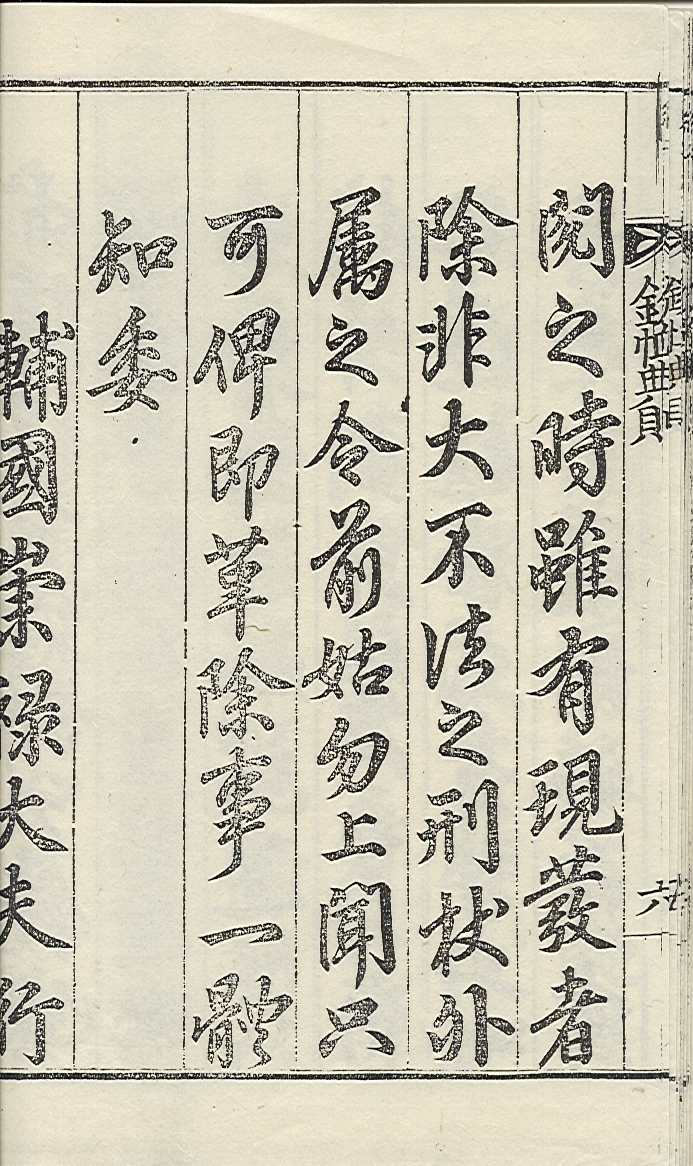 欽恤典則
閱之時雖有現發者
除非大不法之刑杖外
属之令前姑勿上聞只
可俾即革除事一體
知委
輔國崇禄大夫行